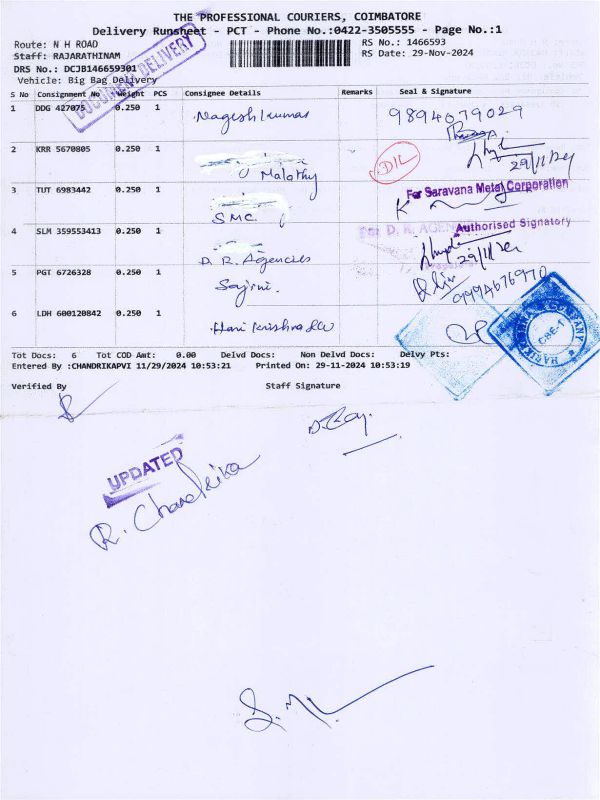 THE PROFESSIONAL COURIERS, COIMBATORE
Delivery Runsheet - PCT - Phone No.:0422-3505555 - Page No.:1
Route: N H ROAD RS No.: 1466593
Staff: RAJARATHINAM RS Date: 29-Nov-2024
DRS No.: DCJB146659301
Vehicle: Big Bag Delivery
DOCUMENT DELIVERY
S No Consignment No Weight PCS Consignee Details Remarks Seal & Signature
1 DDG 427075 0.250 1 Nageshkumar 9894079029
2 KRR 5670805 0.250 1 Malathy D/L 29/11/24
3 TUT 6983442 0.250 1 SMC For Saravana Metal Corporation
Authorised Signatory
4 SLM 359553413 0.250 1 D.R. Agencies For D. R. AGEN 29/11/24
5 PGT 6726328 0.250 1 Sajini 9994676970
6 LDH 600120842 0.250 1 Hari Krishna &Co HARIKRISHNA & COMPANY CBE-1
Tot Docs: 6 Tot COD Amt: 0.00 Delvd Docs: Non Delvd Docs: Delvy Pts:
Entered By :CHANDRIKAPVI 11/29/2024 10:53:21 Printed On: 29-11-2024 10:53:19
Verified By Staff Signature
UPDATED
R. Chandrika